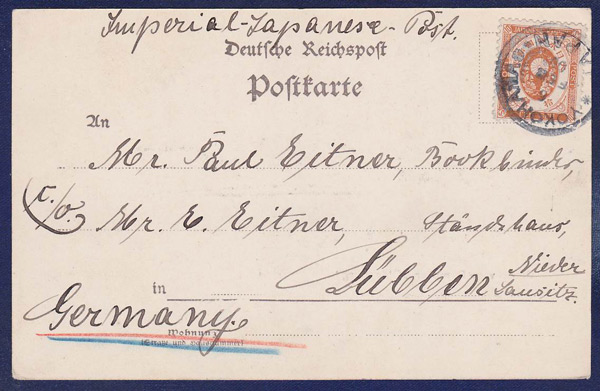 Imperial-Japanese-Post.
Deutsche Reichspost
Postkarte
An
Mr. Paul Eitner, Bookbinder,
c/o. Mr. E. Eitner, Ständehaus,
in Lübben Nieder
Lausitz.
Germany.
Wohnung
(Straße und Hausnummer)
YOKOHAMA
JAPAN